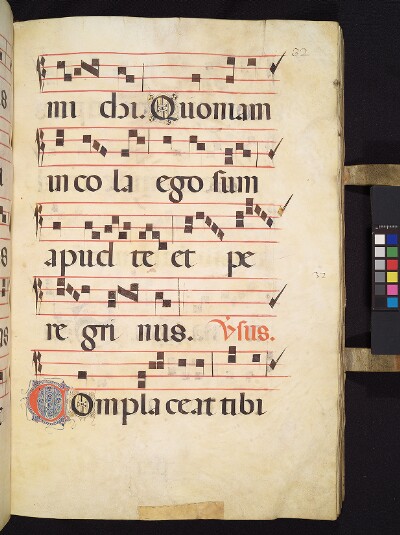 32
mi chi. Quoniam
incola ego sum
apud te et pe
re gri nus. Vsus.
32
Compla ceat tibi